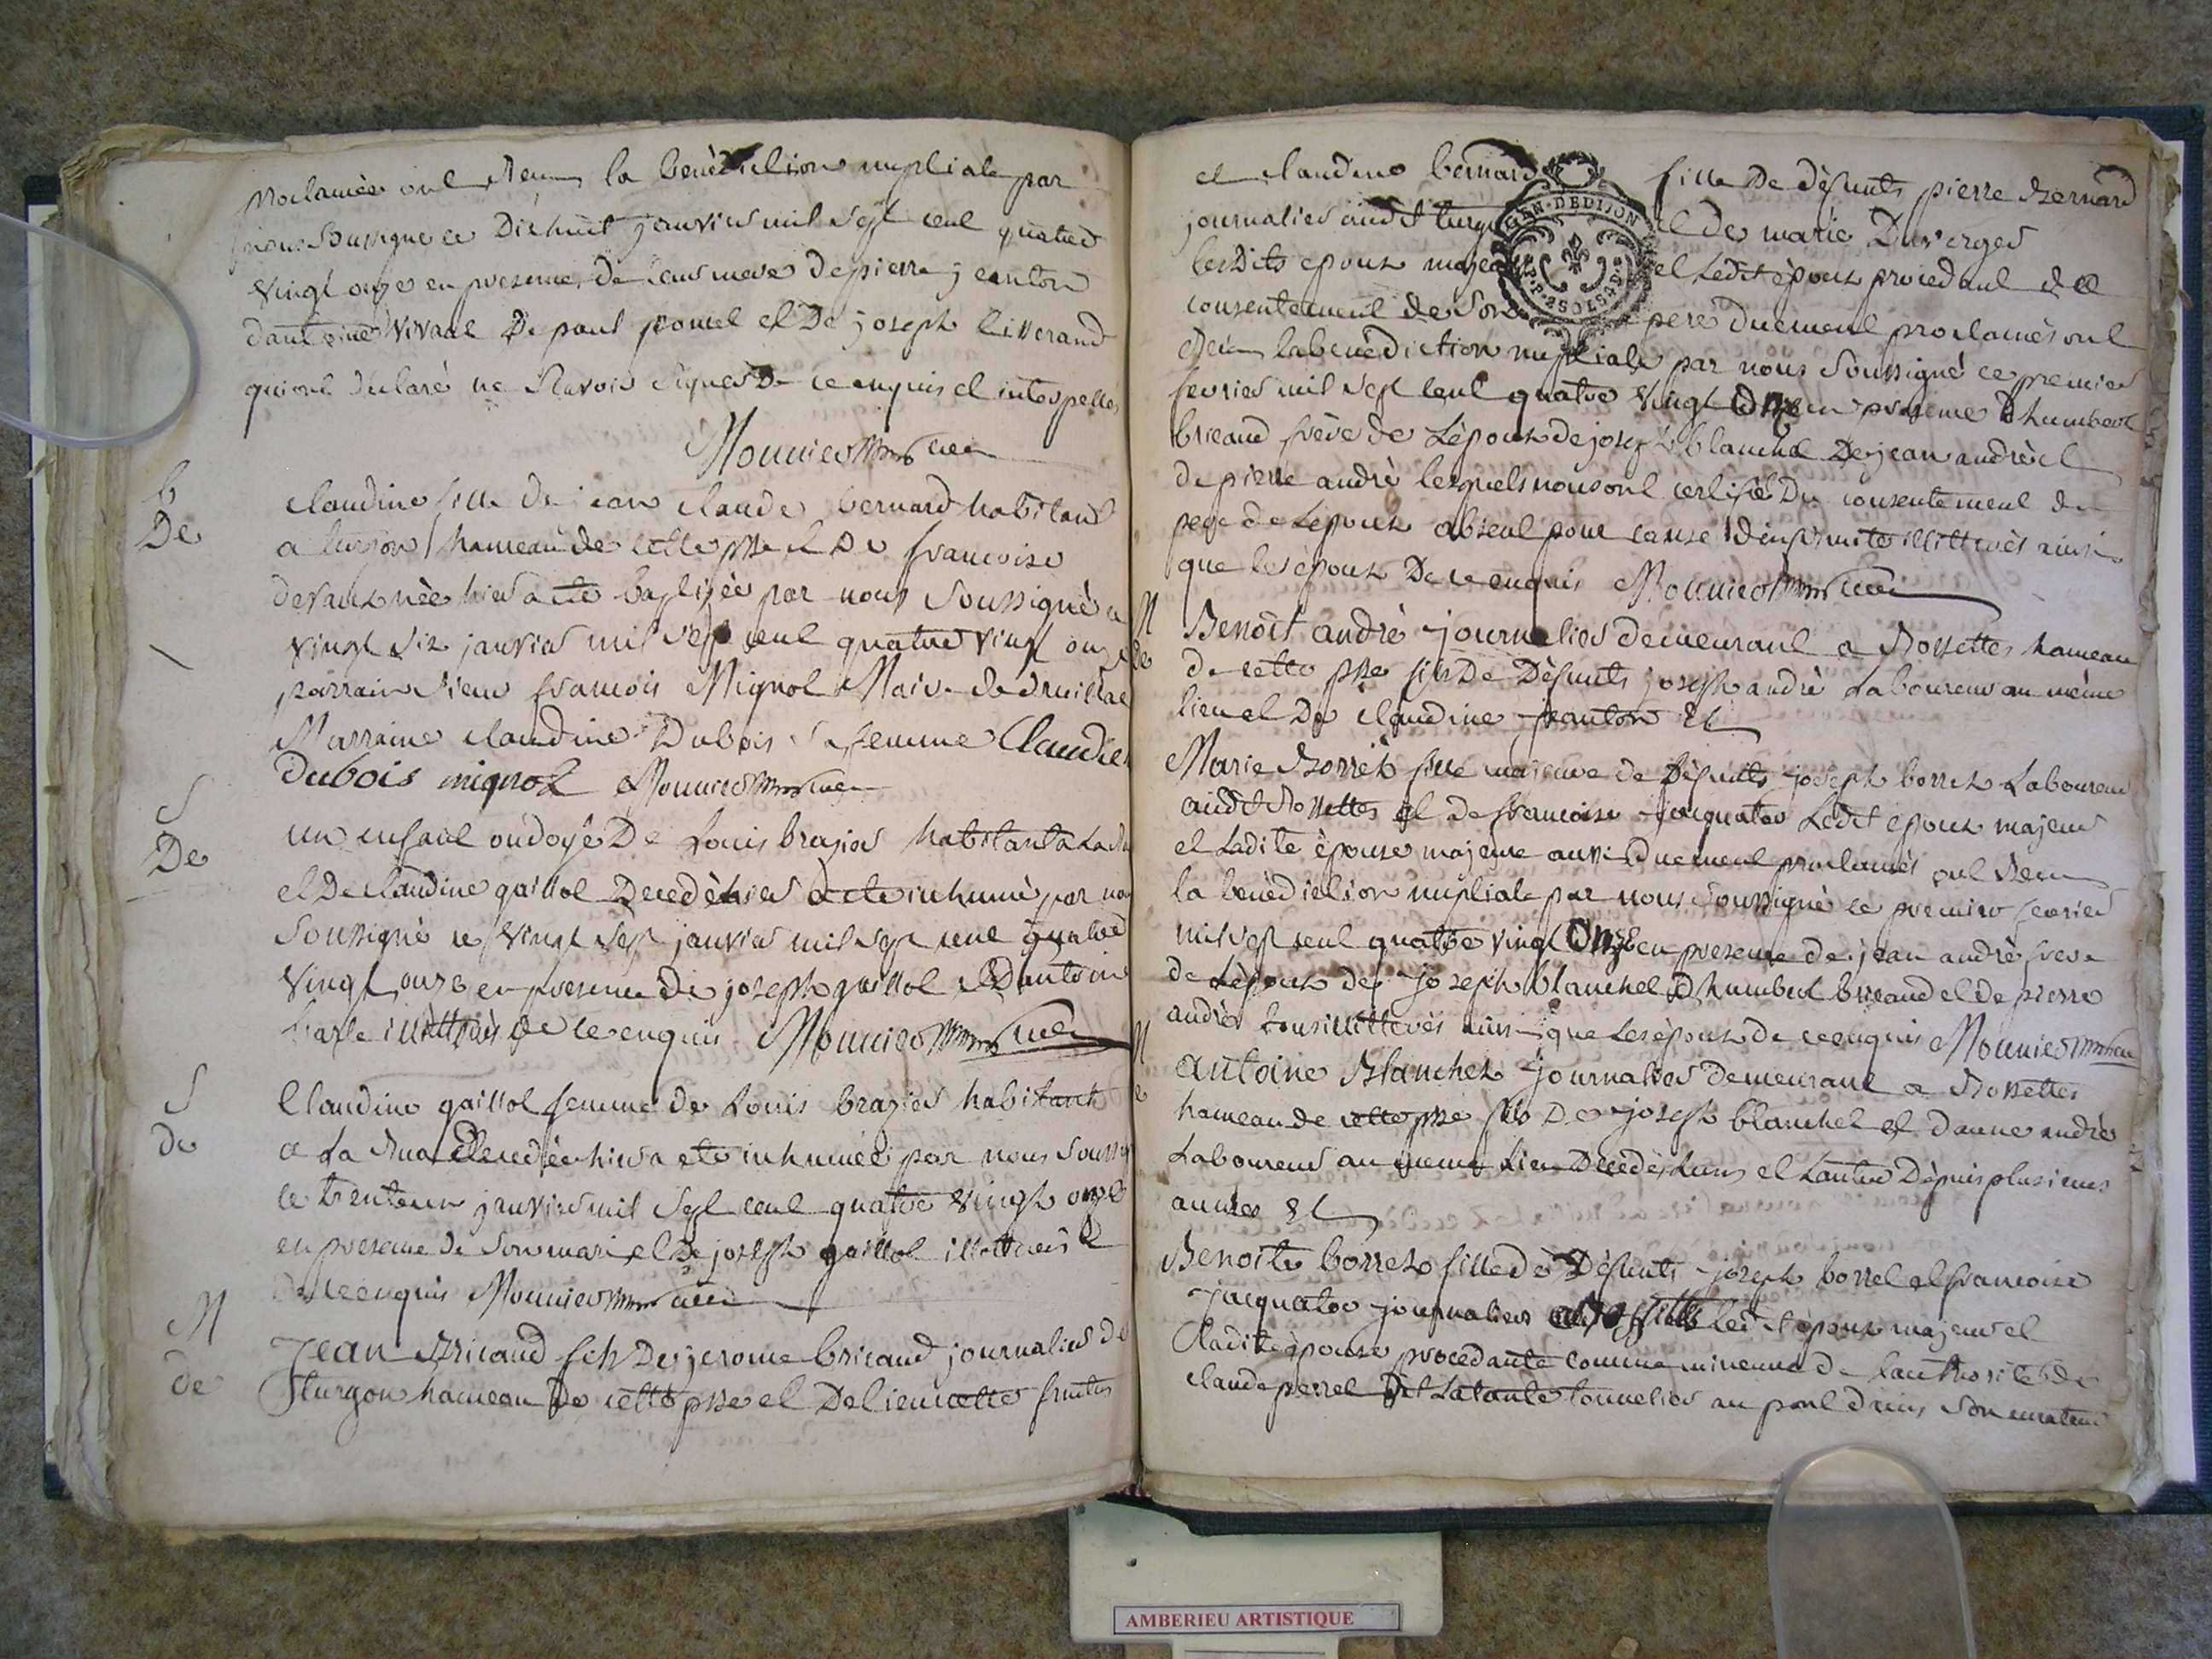 proclamés ont reçu la bénédiction nuptiale par
nous soussigné ce dixhuit janvier mil sept cent quatre
vingt onze en presence de leurs meres de pierre jeanton
dantoine vivaal De paul poncel et De joseph Litterand
qui ont déclaré ne scavoir signer De ce enquis et interpellés
Mounier curé
b
De
claudine fille de jean claude bernard habitant
a turgon hameau de cette psse et De francoise
devaux née hier a eté baptisée par nous soussigné ce
vingt six janvier mil sept cent quatre vingt onze
parrain sieur francois Mignot Maire de druillat
Marraine claudine Dubois sa femme Claudine
Dubois mignot Mounier curé
S
De
un enfant ondoyé De Louis brazier habitant a La Rua
et De claudine gaillot Decedé hier a eté inhumé par nous
soussigné ce vingt sept janvier mil sept cent quatre
vingt onze en presence de joseph gaillot et D'antoine
illittrés de ce enquis Mounier curé
S
de
Claudine gaillot femme de Louis brazier habitant
a La Rua decedée hier a eté inhumée par nous soussigné
ce trente un janvier mil sept cent quatre vingt onze
en presence de son mari et De joseph gaillot illittrés
De ce enquis Mounier curé
M
de
Jean Bricaud fils De jerome bricaud journalier de
turgon hameau De cette psse et De lienette
et claudine bernard fille De défunts pierre Bernard
journalier audit turgon et de marie Duverger
lesdits epoux majeurs et Ledit epoux procedant du
consentement de son pere duement proclamés ont
reçu la bénédiction nuptiale par nous soussigné ce premier
fevrier mil sept cent quatre vingt onze en presence d'humbert
bricaud frère de Lépoux de joseph blanchet De jean andré et
de pierre andré lesquels nous ont certifié Du consentement du
pere de Lépoux absent pour cause d'infirmité illittrés ainsi
que les époux De ce enquis Mounier curé
M
de
Benoit andré journalier demeurant a Rossettes hameau
de cette psse fils De Défunts joseph andré Laboureur au même
lieu et De claudine jeanton Et
Marie Borret fille majeure de Défunts joseph borret Laboureur
audit Rossettes et De francoise jacquater Ledit époux majeur
et Ladite épouse majeure aussi duement proclamés ont reçu
la bénédiction nuptiale par nous soussigné ce premier fevrier
mil sept cent quatre vingt onze en presence de jean andré frere
de Lépoux de joseph blanchet D'humbert bricaud et de pierre
andré tous illittrés ainsi que Les époux de ce enquis Mounier curé
M
de
antoine Blanchet journalier demeurant a Rossettes
hameau de cette psse fils De joseph blanchet et d'anne andré
Laboureur au meme Lieu Decedés Lun et Lautre Depuis plusieurs
années Et
Benoite borret fille de Défunts joseph borret et francoise
jacquater journalier a Rossettes ledit époux majeur et
Ladite épouse procedante comme mineure de lauthorité de
claude perret dit Latante tonnelier au pont dains son curateur
GEN·DE DIJON
AMBERIEU ARTISTIQUE